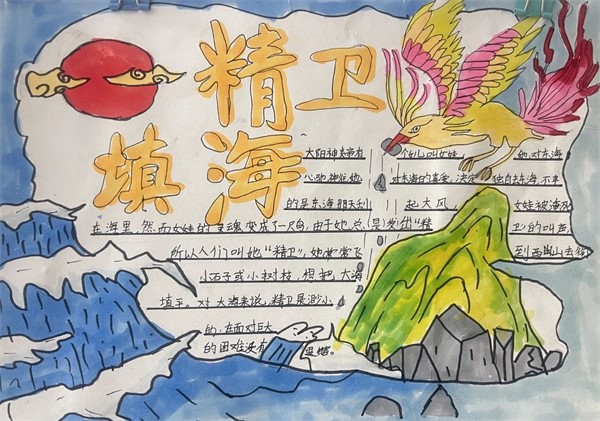 精卫
填海
太阳神炎帝有一个女儿叫女娃，她对东海
心驰神往 对东海的喜爱，决定独自去东海 不幸
的是东海那天刮起大风，女娃被淹死
在海里，然而女娃的灵魂变成了一只鸟，由于她总是发出“精卫”的叫声
所以人们叫她“精卫”，她常常飞到西山去衔
小石子或小树枝，想把大海
填平。对大海来说，精卫是渺小
的，在面对巨大
的困难没有退缩。